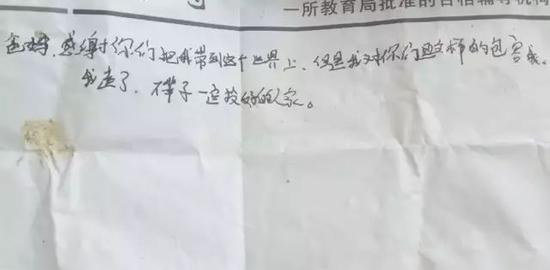 一所教育局批准的合格辅导机构
爸妈，感谢你们把我带到这个世界上，但是我对你们这样的包容我。
我走了，下辈子一定投好的人家。